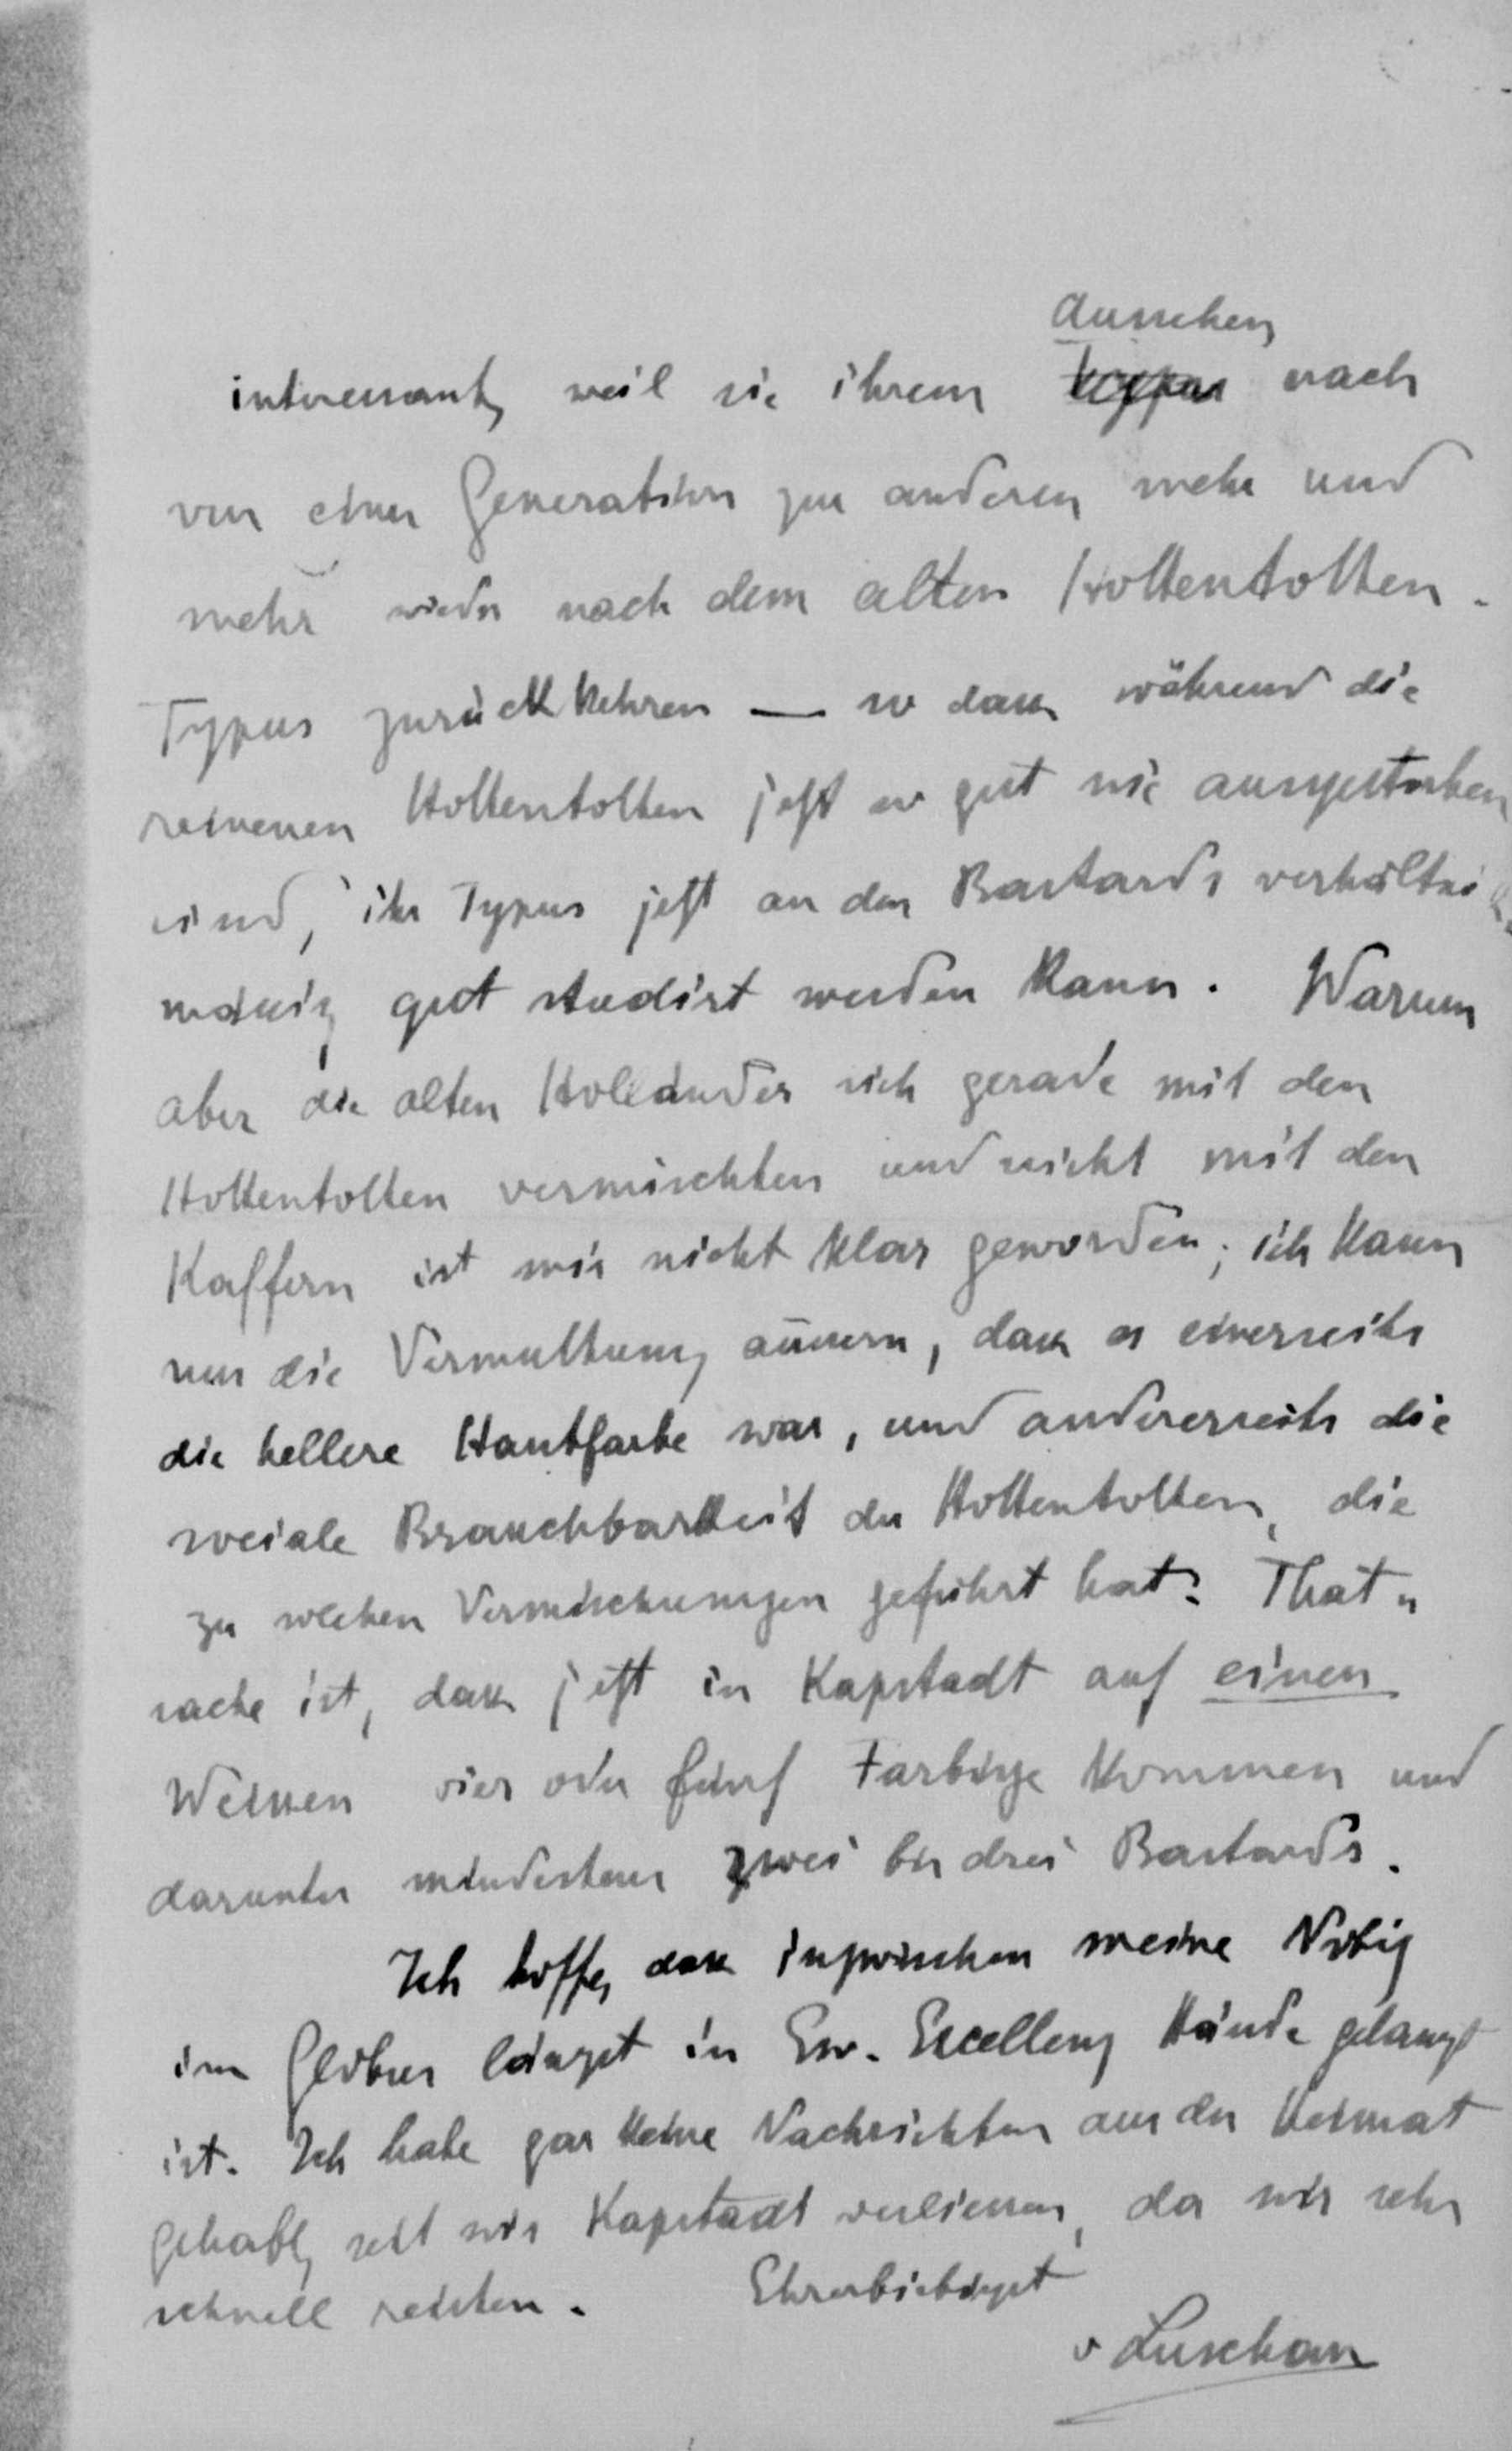 Aussehen
interessant, weil sie ihrem Typus nach
von einer Generation zur anderen mehr und
mehr wieder nach dem alten Hottentotten-
Typus zurückkehren — so dass während die
reineren Hottentotten jetzt so gut wie ausgestorben
sind, ihr Typus jetzt an den Bastards verhältnis
mässig gut studirt werden kann. Warum
aber die alten Holländer sich gerade mit den
Hottentotten vermischten und nicht mit den
Kaffern ist mir nicht klar geworden; ich kann
nur die Vermuthung äussern, dass es einerseits
die hellere Hautfarbe war, und andererseits die
sociale Brauchbarkeit der Hottentotten, die
zu solchen Vermischungen geführt hat. That-
sache ist, dass jetzt in Kapstadt auf einen
Weissen vier oder fünf Farbige kommen und
darunter mindestens zwei bis drei Bastards.
Ich hoffe, dass inzwischen meine Notiz
im Globus längst in Ew. Excellenz Hände gelangt
ist. Ich habe gar keine Nachrichten aus der Heimat
gehabt, seit wir Kapstadt verliessen, da wir sehr
schnell reisten. Ehrerbietigst
v Luschan